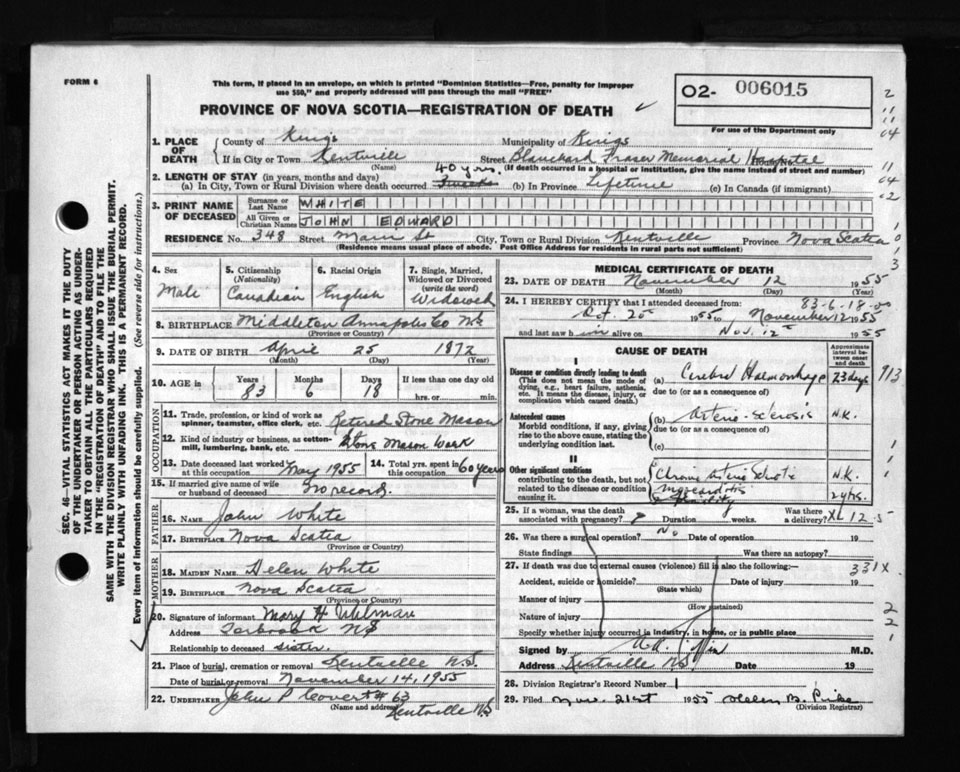 FORM 6
This form, if placed in an envelope, on which is printed "Dominion Statistics—Free, penalty for improper
use $50," and properly addressed will pass through the mail "FREE"
O2- 006015
PROVINCE OF NOVA SCOTIA—REGISTRATION OF DEATH
For use of the Department only
1. PLACE OF DEATH
County of Kings Municipality of Kings
If in City or Town Kentville Street Blanchard Fraser Memorial Hospital
(Name) (If death occurred in a hospital or institution, give the name instead of street and number)
2. LENGTH OF STAY (in years, months and days) 40 yrs.
(a) In City, Town or Rural Division where death occurred 3 weeks (b) In Province Lifetime (c) In Canada (if immigrant)
3. PRINT NAME OF DECEASED
Surname or Last Name WHITE
All Given or Christian Names JOHN EDWARD
RESIDENCE No. 348 Street Main St City, Town or Rural Division Kentville Province Nova Scotia
(Residence means usual place of abode. Post Office Address for residents in rural parts not sufficient)
4. Sex Male
5. Citizenship (Nationality) Canadian
6. Racial Origin English
7. Single, Married, Widowed or Divorced (write the word) Widowed
8. BIRTHPLACE Middleton Annapolis Co NS
(Province or Country)
9. DATE OF BIRTH April 25 1872
(Month) (Day) (Year)
10. AGE in Years Months Days If less than one day old
83 6 18 hrs. or min.
OCCUPATION
11. Trade, profession, or kind of work as
spinner, teamster, office clerk, etc. Retired Stone Mason
12. Kind of industry or business, as cotton-
mill, lumbering, bank, etc. Stone Mason Work
13. Date deceased last worked at this occupation May 1955 14. Total yrs. spent in this occupation 60 years
15. If married give name of wife
or husband of deceased No record.
FATHER
16. NAME John White
17. BIRTHPLACE Nova Scotia
(Province or Country)
MOTHER
18. MAIDEN NAME Helen White
19. BIRTHPLACE Nova Scotia
(Province or Country)
20. Signature of informant Mary H
Address NS
Relationship to deceased sister.
21. Place of burial, cremation or removal Kentville N.S.
Date of burial or removal November 14, 1955
22. UNDERTAKER John P Covert # 63
(Name and address) Kentville NS
MEDICAL CERTIFICATE OF DEATH
23. DATE OF DEATH November 12 1955
(Month) (Day) (Year)
83-6-18
24. I HEREBY CERTIFY that I attended deceased from:
Oct. 20 1955 to November 12 1955
and last saw h im alive on Nov. 12 1955
CAUSE OF DEATH
Approximate interval between onset and death
I
Disease or condition directly leading to death
(This does not mean the mode of dying, e.g., heart failure, asthenia, etc. It means the disease, injury, or complication which caused death.)
(a) Cerebral Haemorrhage 23 days
due to (or as a consequence of)
Antecedent causes
Morbid conditions, if any, giving rise to the above cause, stating the underlying condition last.
(b) Arterio-sclerosis N.K.
due to (or as a consequence of)
(c)
II
Other significant conditions
contributing to the death, but not related to the disease or condition causing it.
N.K.
2 yrs.
25. If a woman, was the death Was there
associated with pregnancy? Duration weeks. a delivery?
26. Was there a surgical operation? No Date of operation 19
State findings Was there an autopsy?
27. If death was due to external causes (violence) fill in also the following:—
331X
Accident, suicide or homicide? Date of injury 19
(State which)
Manner of injury
(How sustained)
Nature of injury
Specify whether injury occurred in industry, in home, or in public place
Signed by M.D.
Address Kentville NS Date 19
28. Division Registrar's Record Number 1
29. Filed Nov. 21st 1955 Helen B.
(Division Registrar)
SEC. 46—VITAL STATISTICS ACT MAKES IT THE DUTY
OF THE UNDERTAKER OR PERSON ACTING AS UNDER-
TAKER TO OBTAIN ALL THE PARTICULARS REQUIRED
IN THE "REGISTRATION OF DEATH" AND TO FILE THE
SAME WITH THE DIVISION REGISTRAR WHO SHALL ISSUE THE BURIAL PERMIT.
WRITE PLAINLY WITH UNFADING INK. THIS IS A PERMANENT RECORD.
Every item of information should be carefully supplied. (See reverse side for instructions.)